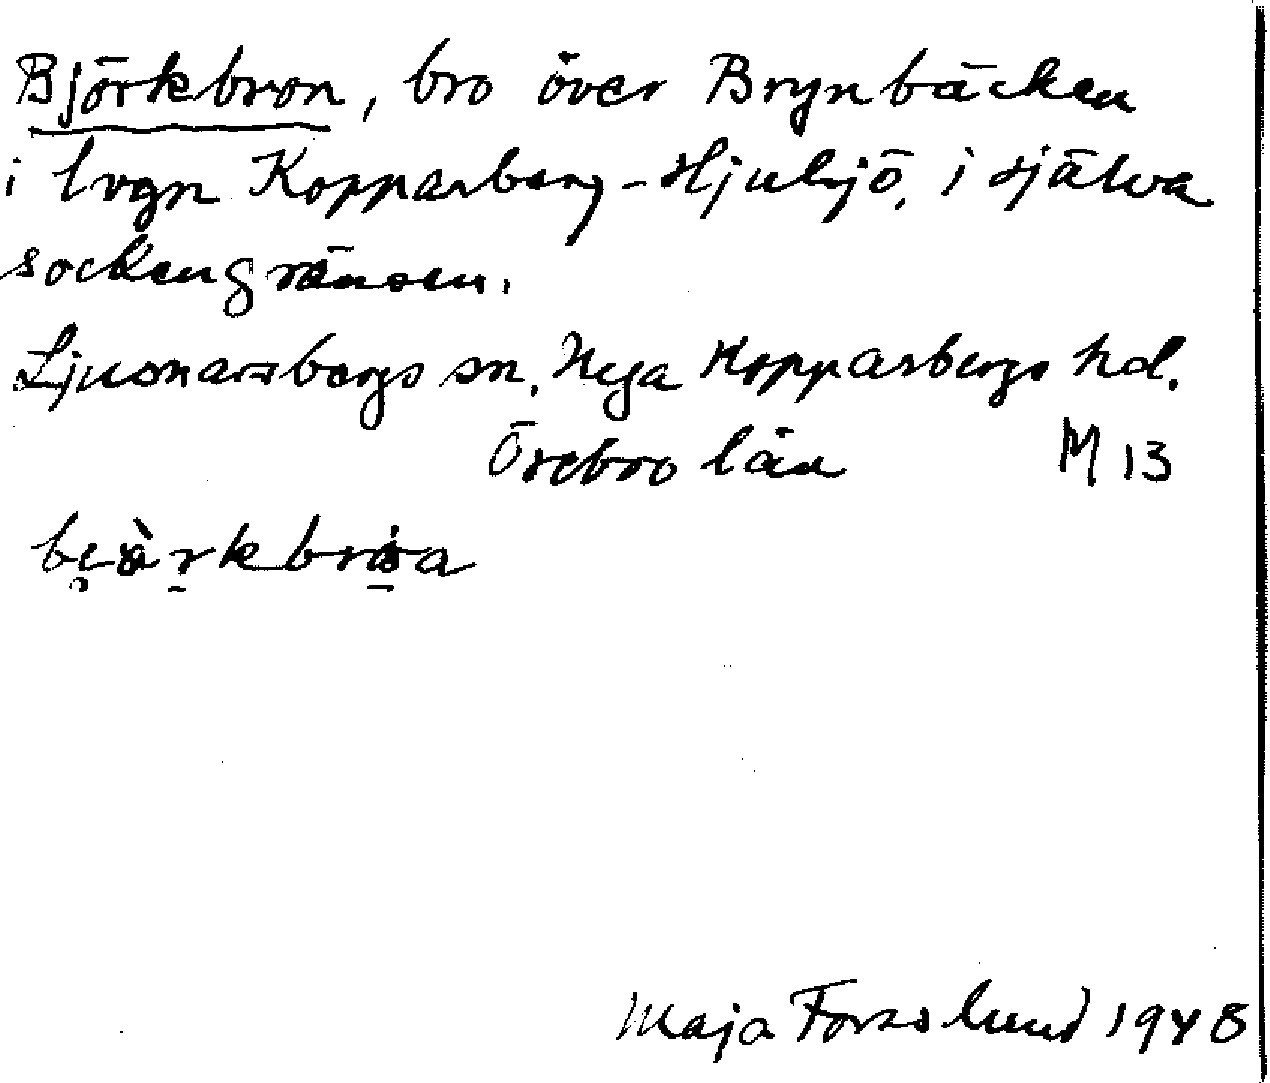 Björkbron, bro över Brynbäcken
i lvgn Kopparberg-Hjulsjö, i själva
sockengränsen.
Ljusnarsbergs sn, Nya Kopparbergs hd.
Örebro län M 13
Maja Forsslund 1948